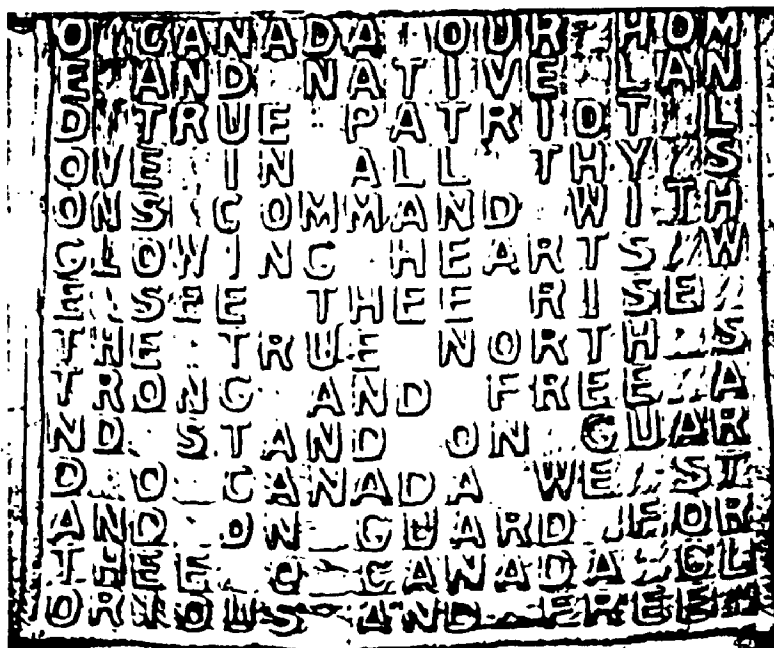 O CANADA OUR HOM
E AND NATIVE LAN
D TRUE PATRIOT L
OVE IN ALL THY S
ONS COMMAND WITH
GLOWING HEARTS W
E SEE THEE RISE
THE TRUE NORTH S
TRONG AND FREE A
ND STAND ON GUAR
D O CANADA WE ST
AND ON GUARD FOR
THEE O CANADA GL
ORIOUS AND FREE